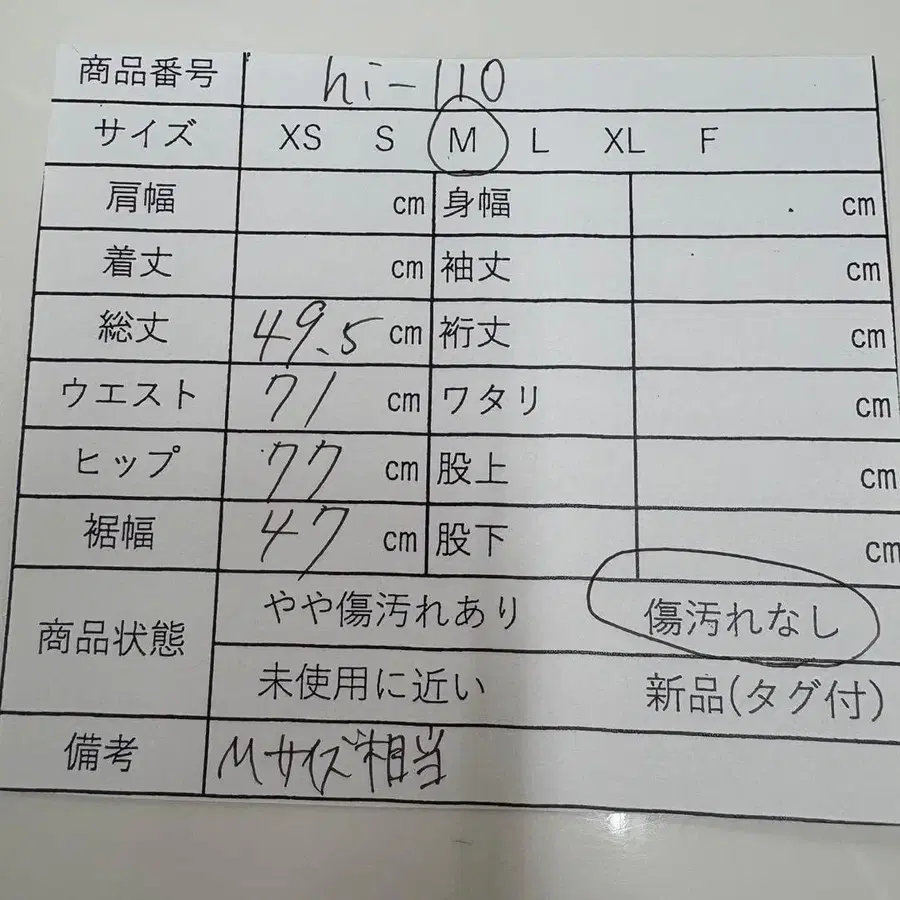 商品番号 hi-110
サイズ XS S M L XL F
肩幅 cm 身幅 cm
着丈 cm 袖丈 cm
総丈 49.5 cm 裄丈 cm
ウエスト 71 cm ワタリ cm
ヒップ 77 cm 股上 cm
裾幅 47 cm 股下 cm
商品状態 やや傷汚れあり 傷汚れなし
未使用に近い 新品(タグ付)
備考 Mサイズ相当